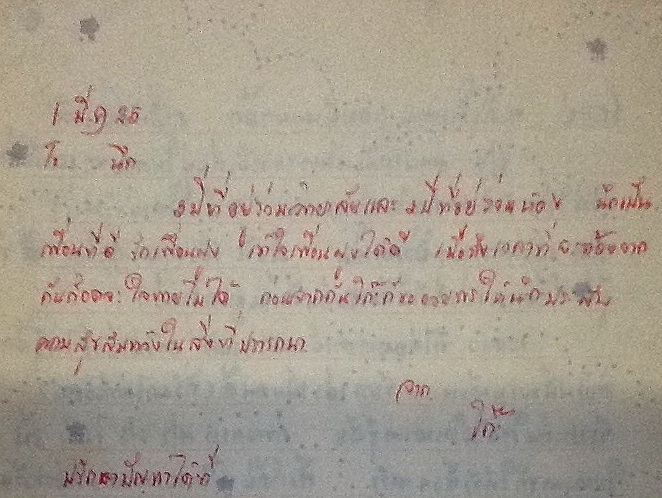 1 มี.ค 25
ถึง นึก
3 ปีที่อยู่ร่วมวิทยาลัยและ 2 ปีที่อยู่ร่วมห้อง นึกเป็น
เพื่อนที่ดี รักเพื่อนฝูง เข้าใจเพื่อนฝูงได้ดี เมื่อถึงเวลาที่จะต้องจาก
กันก็อดจะใจหายไม่ได้ ก่อนจากกันก็ขออวยพรให้นึกประสบ
ความสุขสมหวังในสิ่งที่ปรารถนา
จาก
ปรึกษาปัญหาได้ที่